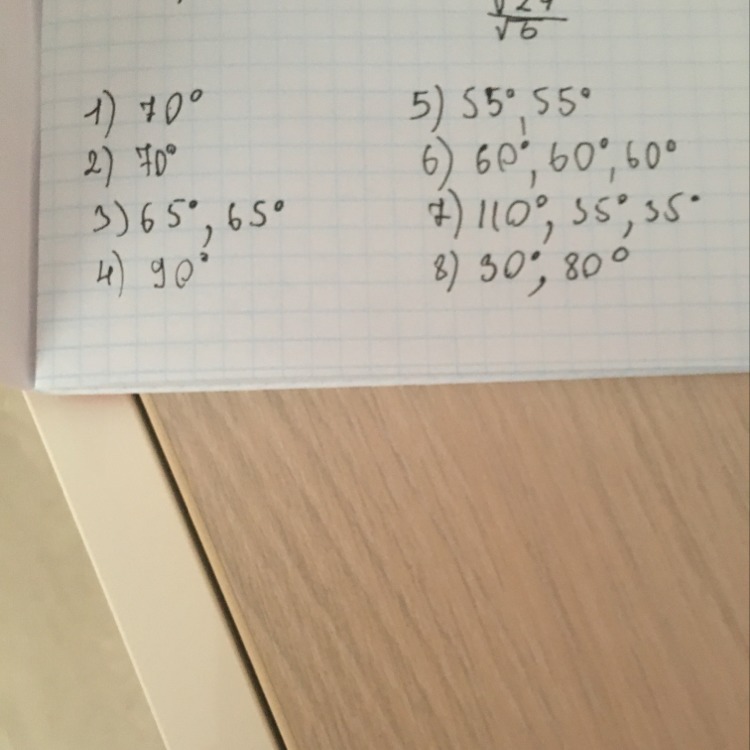 √6
1) 70°
2) 70°
3) 65°, 65°
4) 90°
5) 55°, 55°
6) 60°, 60°, 60°
7) 110°, 35°, 35°
8) 30°, 80°